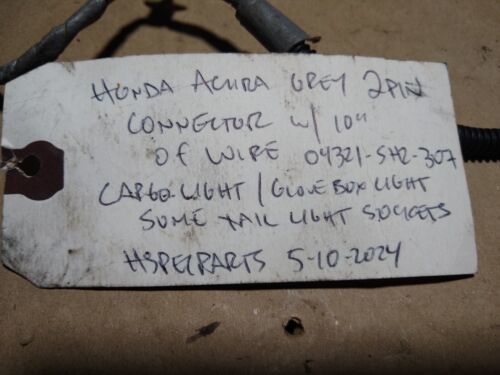 HONDA ACURA GREY 2PIN
CONNECTOR W/ 10"
OF WIRE 04321-SH2-307
CARGO-LIGHT / GLOVE BOX LIGHT
SOME TAIL LIGHT SOCKETS
HSPECPARTS 5-10-2024